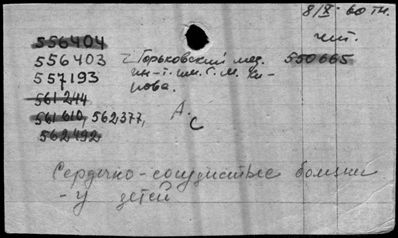 8/X-60
556404
556403
557193
561244
561610, 562377,
562492
Горьковский мед.
ин-т. им. С. М. Ки-
рова.
550665
А.
С
Сердечно-сосудистые болезни
-у детей